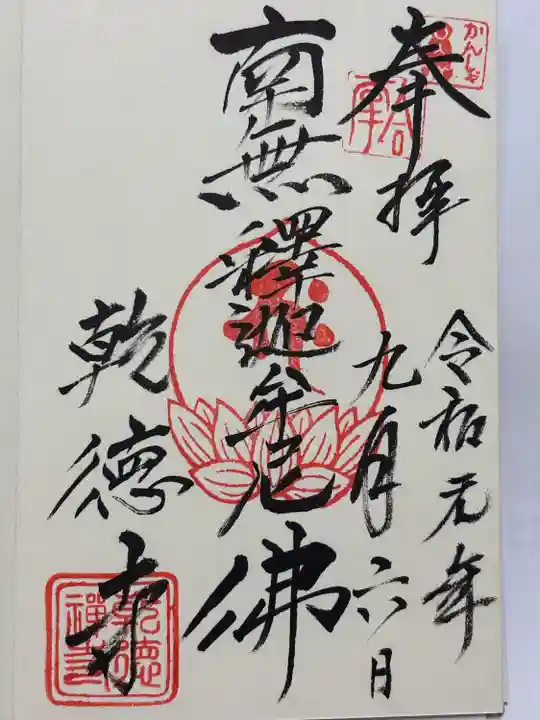 奉拝
令和元年
九月六日
南無釋迦牟尼佛
乾徳寺
かんしょ
乾徳
禅寺